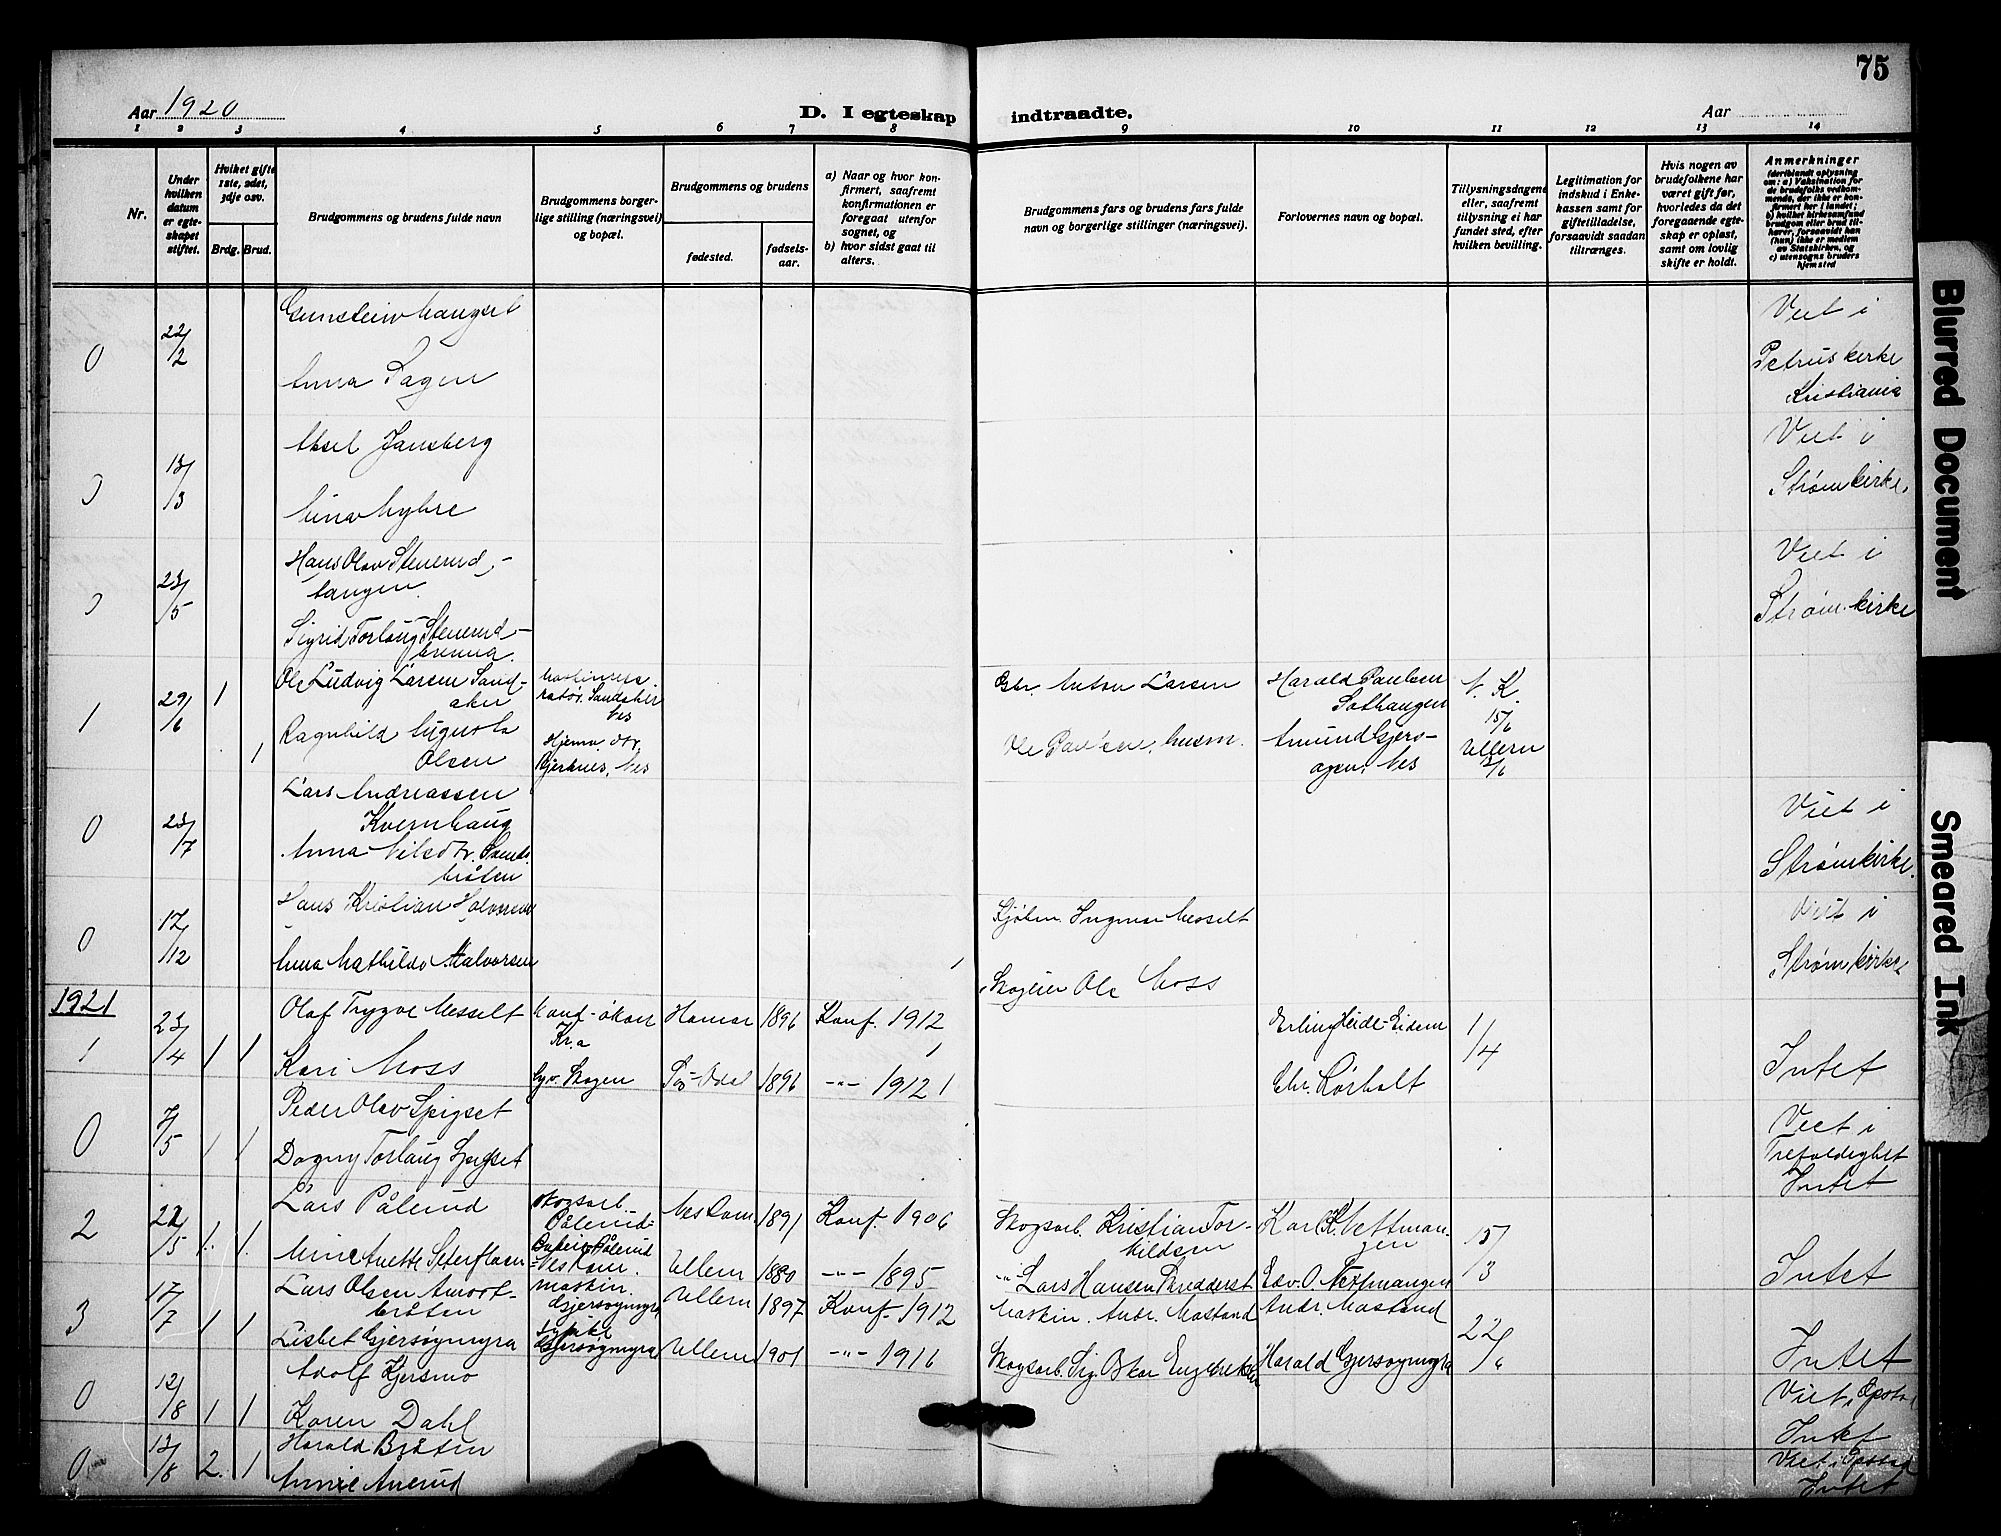 75
Aar 1920
D. I egteskap indtraadte.
Aar
1 2 3 4 5 6 7 8 9 10 11 12 13 14
Nr.
Under hvilken datum er egteskapet stiftet.
Hvilket gifte 1ste, 2det, 3dje osv.
Brdg. Brud.
Brudgommens og brudens fulde navn
Brudgommens borgerlige stilling (næringsvei) og bopæl.
Brudgommens og brudens
fødested.
fødselsaar.
a) Naar og hvor konfirmert, saafremt konfirmationen er foregaat utenfor sognet, og
b) hvor sidst gaat til alters.
Brudgommens fars og brudens fars fulde navn og borgerlige stillinger (næringsvei).
Forlovernes navn og bopæl.
Tillysningsdagene eller, saafremt tillysning ei har fundet sted, efter hvilken bevilling.
Legitimation for indskud i Enkekassen samt for giftetilladelse, forsaavidt saadan tiltrænges.
Hvis nogen av brudefolkene har været gift før, hvorledes da det foregaaende egteskap er opløst, samt om lovlig skifte er holdt.
Anmerkninger
(deriblandt oplysning om: a) Vaksination for de brudefolks vedkommende, der ikke er konfirmert her i landet; b) hvilket kirkesamfund brudgom eller brud tilhører, forsaavidt han (hun) ikke er medlem av Statskirken, og c) utensogns bruders hjemsted
0 22/2 Gunstein Haugset
Anna Sagen
Viet i
Petruskirke
Kristiania
13/3 Aksel Jansberg
Viet i
Strøm kirke.
23/5 Hans Olav Stenerud-
tangen.
Sigrid Torlaug Stenerud-
brenna.
Viet i
Strøm kirke
1 29/6 1 Ole Ludvig Larsen Sand-
aker
Sandaker
Nes
Anton Larsen
Harald Paulsen
N. K.
15/6
1 Ragnhild Augusta
Olsen
Nes
Amund Gjers-
øgen, Nes
Ullern
0 23/7 Lars Andreassen
Kvernhaug
Anna Nilsdtr.
bråten
Viet i
Strøm kirke.
0 17/12 Hans Kristian Halvorsen
Anna Mathilde Halvorsen
Viet i
Strøm kirke
Kjøbm. Ingmar Messelt
Skogeier Ole Moss
1921
1 23/4 1 1 Olaf Trygve Messelt
Kr.a
Hamar 1896 Konf. 1912
Erling Heide-Eidem
1/4
Kari Moss
Skogen
Sø-Odal 1896 -"- 1912
Chr. Lørholt
Intet
0 7/5 1 1 Peder Olav Spigset
Dagny Torlaug Spigset
Viet i
Trefoldighet
Intet
2 22/5 1. 1. Lars Pålerud
Skogsarb.
Pålerud
1891 Konf. 1906
Skogsarb. Kristian Tor-
kildsen
15/3
Mine Anette Seterflaen
Ullern 1880 -"- 1895
-"- Lars Hansen
Intet
3 17/7 1 1 Lars Olsen Amoot-
bråten
maskin.
Gjersøymyra
Ullern 1897 Konf. 1912
Maskin. Andr. Mastand
Andr. Mastand
22/6
Lisbet Gjersøymyra
Gjersøymyra
Ullern 1901 -"- 1916
Skogsarb. Sig. Oskar Engebretsen
Harald Gjersøymyra
Intet
0 12/8 1 1 Adolf Kjersmo
Karen Dahl
Viet i Opstad
Intet
0 13/8 2. 1 Harald Bråten
Annie Anerud
Viet i Opstad
Intet
Blurred Document
Smeared Ink